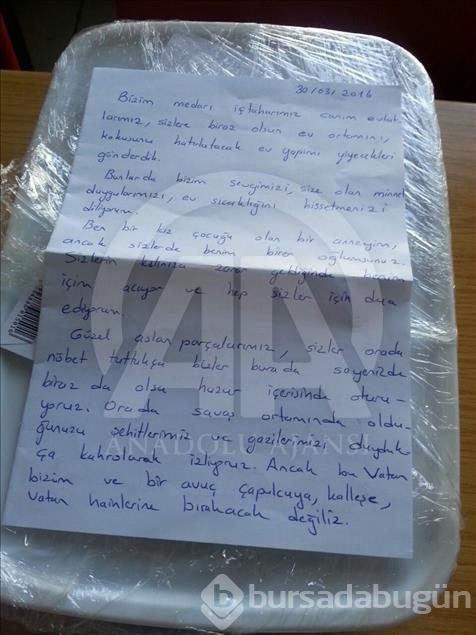 30/03/2016
Bizim medarı iftaharımız canım evlat
larımız, sizlere biraz olsun ev ortamını,
kokusunu hatırlatacak ev yapımı yiyecekleri
gönderdik.
Bunlarda bizim sevgimizi, size olan minnet
duygularımızı, ev sıcaklığını hissetmenizi
diliyorum.
Ben bir kız çocuğu olan bir anneyim,
ancak sizlerde benim birer oğlumsunuz.
Sizlerin kılınıza zarar geldiğinde benim
içim acıyor ve hep sizler için dua
ediyorum.
Güzel aslan parçalarımız, sizler orada
nöbet tuttukça bizler burada sayenizde
biraz da olsa huzur içerisinde oturu-
yoruz. Orada savaş ortamında oldu-
ğunuzu şehitlerimiz ve gazilerimizi duyduk-
ça kahrolarak izliyoruz. Ancak bu Vatan
bizim ve bir avuç çapulcuya, kalleşe,
vatan hainlerine bırakacak değiliz.
AA
ANADOLU AJANSI
b bursadabugün